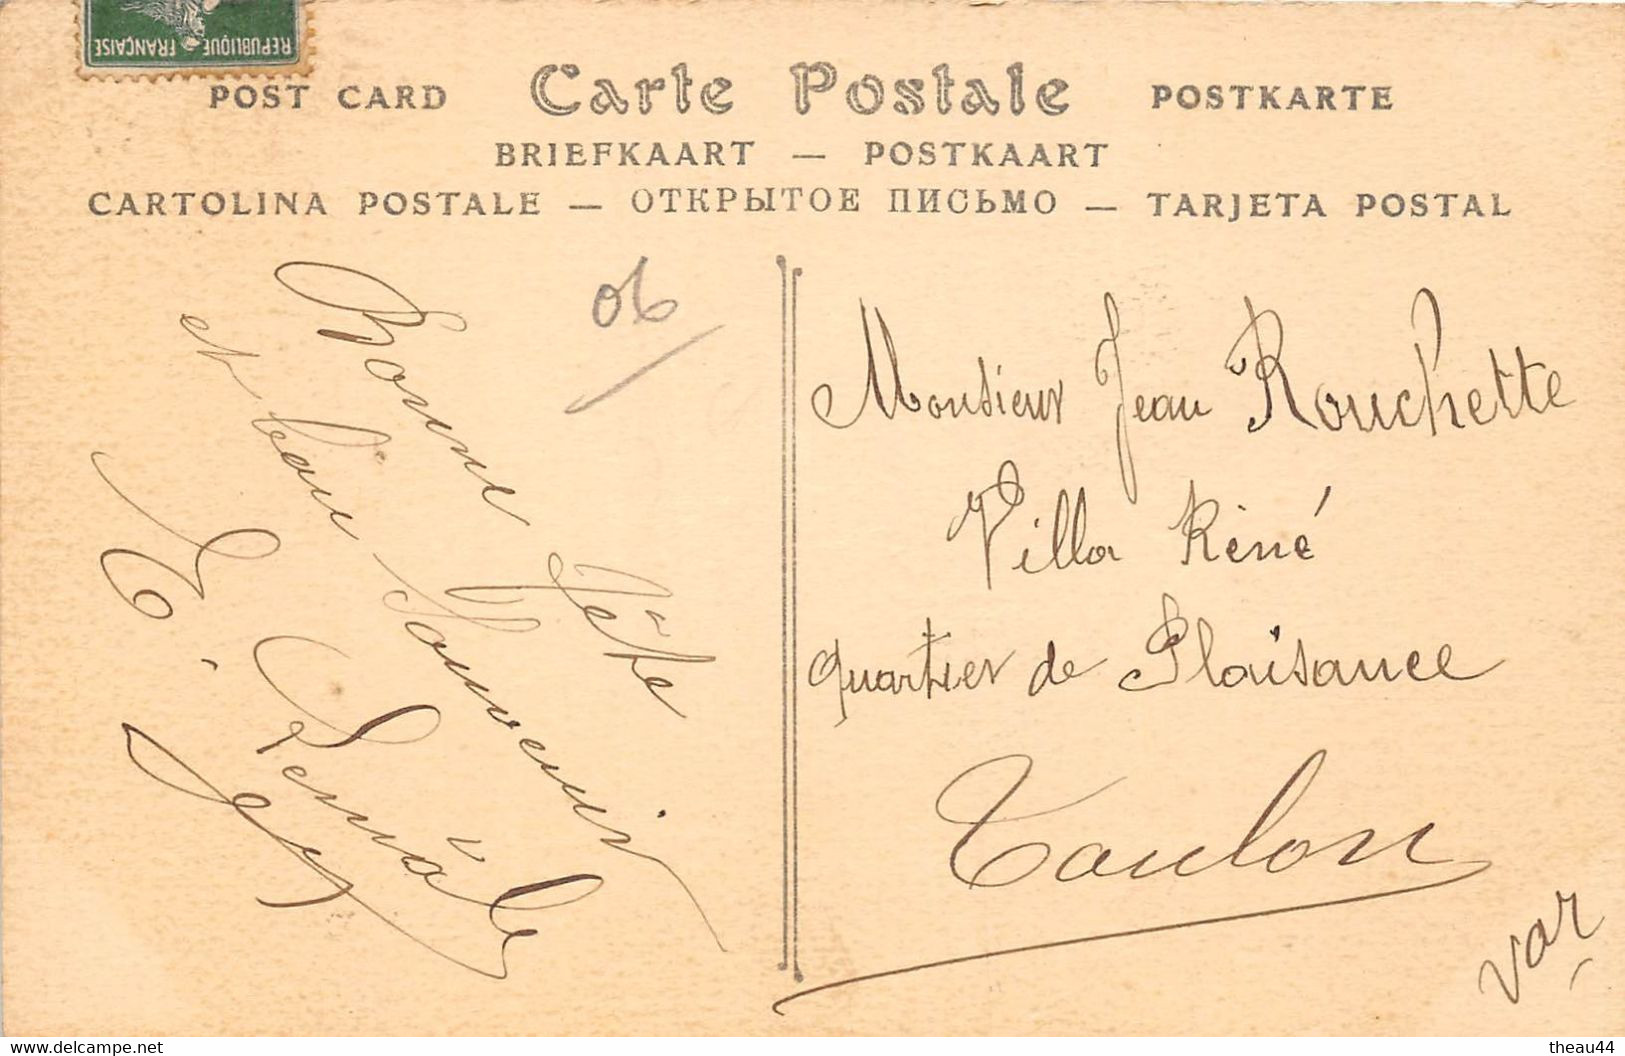 REPUBLIQUE FRANÇAISE
POST CARD Carte Postale POSTKARTE
BRIEFKAART — POSTKAART
CARTOLINA POSTALE — ОТКРЫТОЕ ПИСЬМО — TARJETA POSTAL
06
Bonne fête
et bon Souvenir
E.
Monsieur Jean Rouchette
Villa Réné
quartier de Plaisance
Toulon
Var
www.delcampe.net
theau44